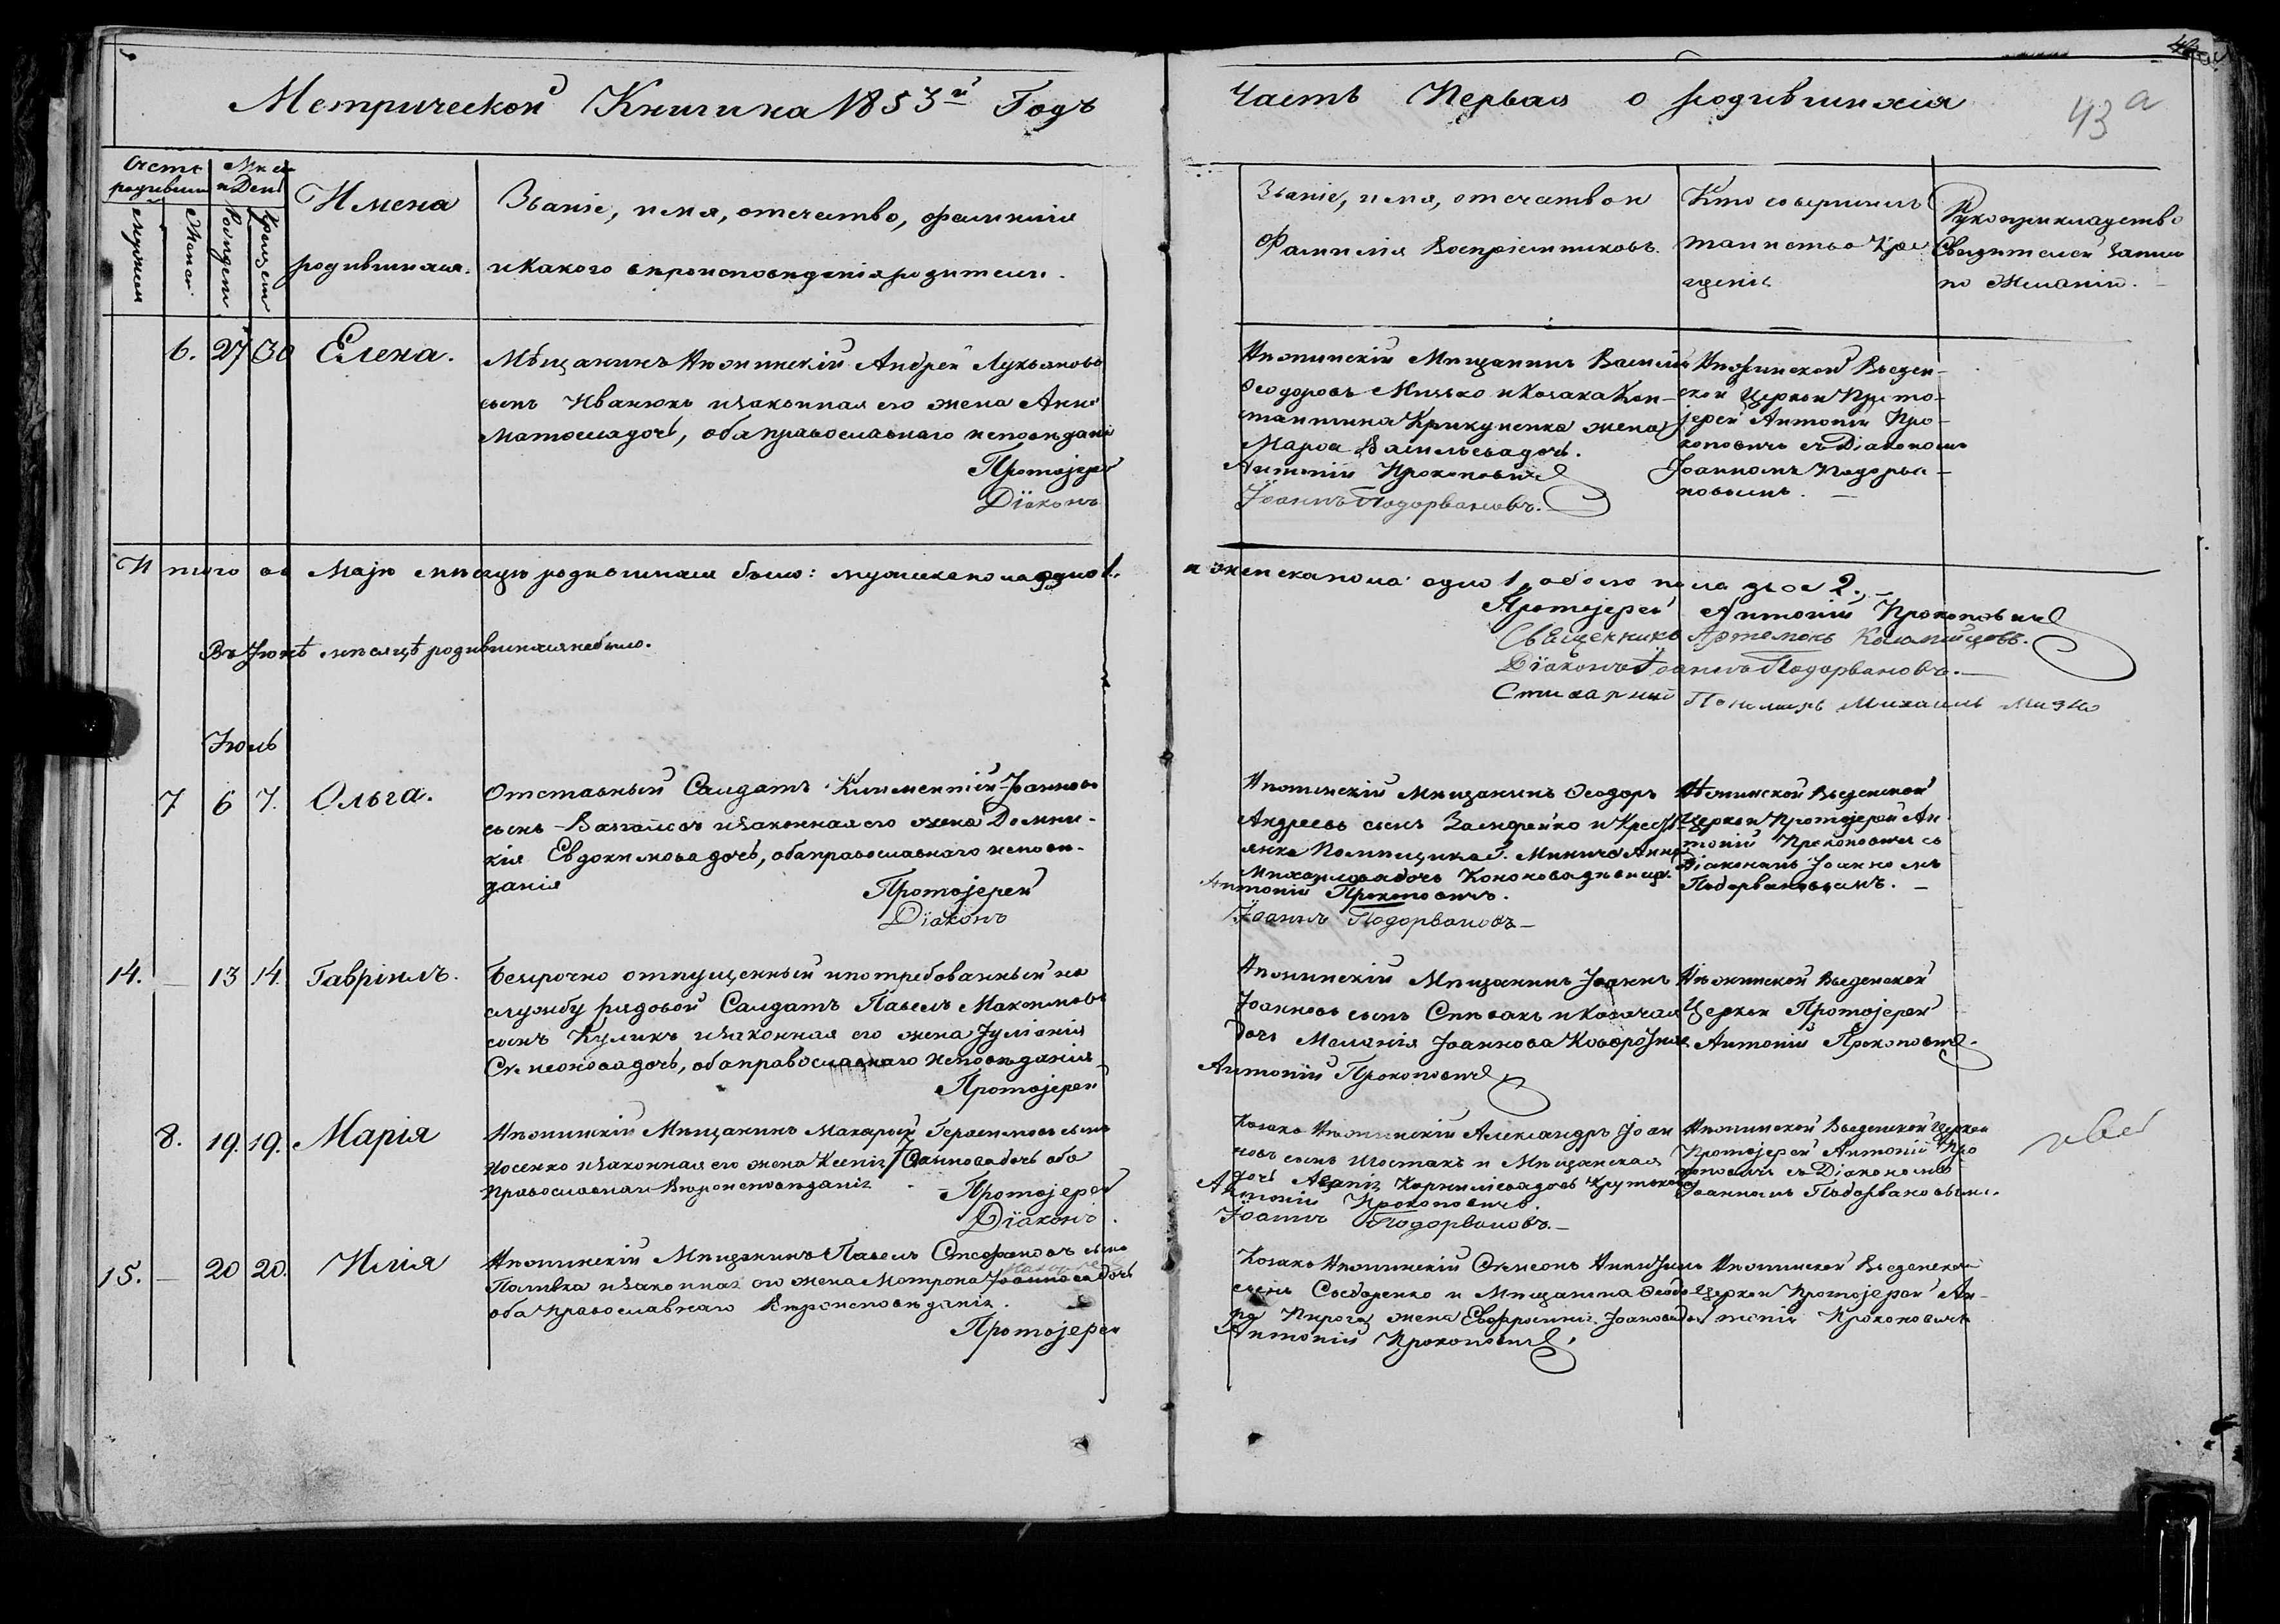 Метрической Книги на 1853й Годъ
Часть Первая о родившихся
43 а
Счетъ родивши
Мца и День
Имена родившихся.
Званіе, имя, отчество, фамилія
и какого вѣроисповѣданія родители.
Званіе, имя, отчество и
Фамилія Воспріемниковъ.
Кто совершилъ
таинство Кре
щенія
Рукоприкладство
Свидѣтелей записи
по Желанію.
Мужеск
Женск
Рожден
Крещен
6. 27 30 Елена.
Мѣщанинъ Нѣжинскій Андрей Лукьяновъ
сынъ Иванюкъ и законная его жена Анна
дочь, оба православнаго исповѣданія
Протоіерей
Діаконъ
Нѣжинскій Мѣщанинъ Василій
Ѳеодоровъ и Козака Кон-
стантина Крикуненка жена
Марѳа Васильева дочь.
Антоній Прокоповичъ
Іоаннъ Подорвановъ.
Нѣжинской Введен-
ской Церкви Прото-
іерей Антоній Про-
коповичъ съ Діакономъ
Іоанномъ Подорва-
новымъ.
Итого въ Маіѣ мѣсяцѣ родившихся было: мужеска пола одно 1.
и женска пола одно 1, обоего пола двое 2.
Протоіерей Антоній Прокоповичъ
Священникъ Артемонъ Коломійцовъ.
Діаконъ Іоаннъ Подорвановъ.
Стихарный Пономарь Михаилъ
Въ Іюнѣ мѣсяцѣ родившихся небыло.
Іюль
7 6 7. Ольга.
Отставный Салдатъ Климентій Іоанновъ
сынъ и законная его жена Домни-
кія Евдокимова дочь, оба православнаго исповѣ-
данія
Протоіерей
Діаконъ
Нѣжинскій Мѣщанинъ Ѳеодоръ
Андреевъ сынъ и Крестья
янка Помѣщика Анна
Михайлова дочь
Антоній Прокоповичъ.
Іоаннъ Подорвановъ
Нѣжинской Введенской
Церкви Протоіерей Ан
тоній Прокоповичъ съ
Діакономъ Іоанномъ
Подорвановымъ.
14. — 13 14. Гавріилъ.
Безсрочно отпущенный и потребованный на
службу рядовой Салдатъ Павелъ Максимовъ
сынъ Куликъ и законная его жена Іуліанія
Симеонова дочь, оба православнаго исповѣданія
Протоіерей
Нѣжинскій Мѣщанинъ Іоаннъ
Іоанновъ сынъ Спѣвакъ и Козачая
дочь Меланія Іоаннова
Антоній Прокоповичъ
Нѣжинской Введенской
Церкви Протоіерей
Антоній Прокоповичъ
8. 19. 19. Марія
Нѣжинскій Мѣщанинъ Макарій Герасимовъ сынъ
Носенко и законная его жена Ксенія Іоаннова дочь оба
Православнаго Вѣроисповѣданія
Протоіерей
Діаконъ.
Козакъ Нѣжинскій Александръ Іоан
новъ сынъ Шостакъ и Мѣщанская
дочь Корниліева дочь
Антоній Прокоповичъ.
Іоаннъ Подорвановъ.
Нѣжинской Введенской Церкви
Протоіерей Антоній Про
коповичъ съ Діакономъ
Іоанномъ Подорвановымъ.
15. — 20 20. Илія
Нѣжинскій Мѣщанинъ Павелъ Стефановъ сынъ
и законная его жена Матрона Іоаннова дочь
оба православнаго Вѣроисповѣданія.
Протоіерей
Козакъ Нѣжинскій Симеонъ
сынъ и Мѣщанина Ѳеодо
ра Пирога жена Евфросинія Іоаннова дочь
Антоній Прокоповичъ.
Нѣжинской Введенской
Церкви Протоіерей Ан-
тоній Прокоповичъ